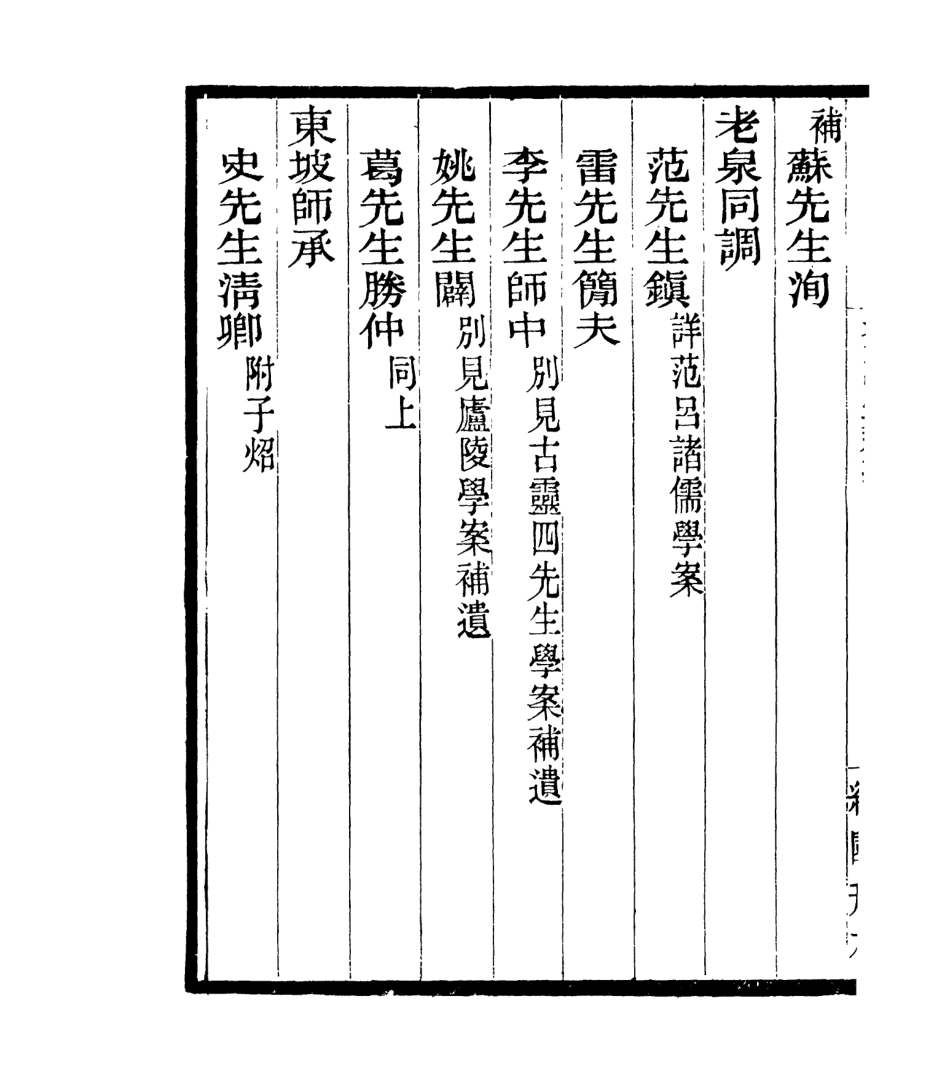 補蘇先生洵
老泉同調
范先生鎭詳范呂諸儒學案
雷先生簡夫
李先生師中別見古靈四先生學案補遺
姚先生闢別見廬陵學案補遺
葛先生勝仲同上
東坡師承
史先生淸卿附子炤